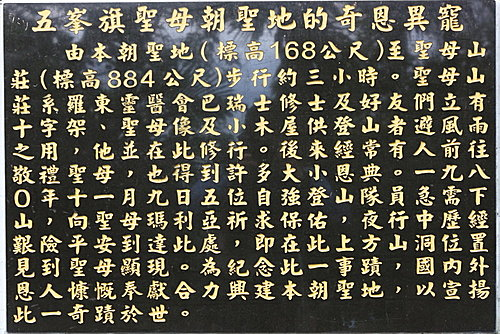 五峯旗聖母朝聖地的奇恩異寵
由本朝聖地(標高168公尺)至聖母山
莊(標高884公尺)步行約三小時。聖母山
莊系羅東靈醫會巴瑞士修士及好友們立有
十字架、聖母像及小木屋供登山者避風雨
之用，他並在此修行。後來經常有人前往
敬禮聖母，也得到許多大小恩典。一九八
〇年十一月九日五位自強登山隊員急需下
山，向聖母瑪利亞祈求保佑，夜行中經歷
艱險平安到達此處，即在此上方山洞位置
見到聖母顯現。為紀念此一聖蹟，國內外
恩人慷慨奉獻合力興建本朝聖地，以宣揚
此一奇蹟於世。